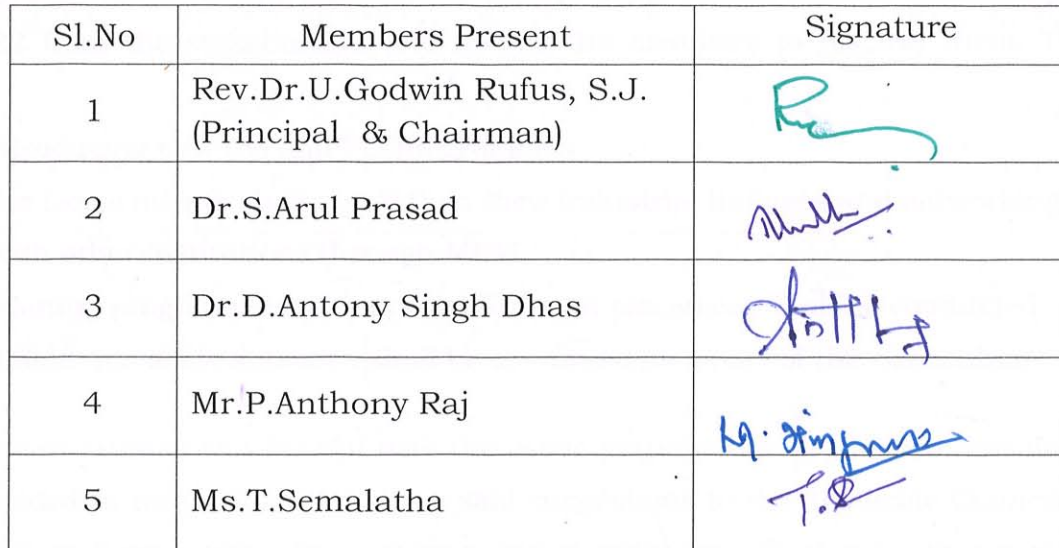 Sl.No Members Present Signature
1 Rev.Dr.U.Godwin Rufus, S.J.
(Principal & Chairman)
2 Dr.S.Arul Prasad
3 Dr.D.Antony Singh Dhas
4 Mr.P.Anthony Raj
5 Ms.T.Semalatha